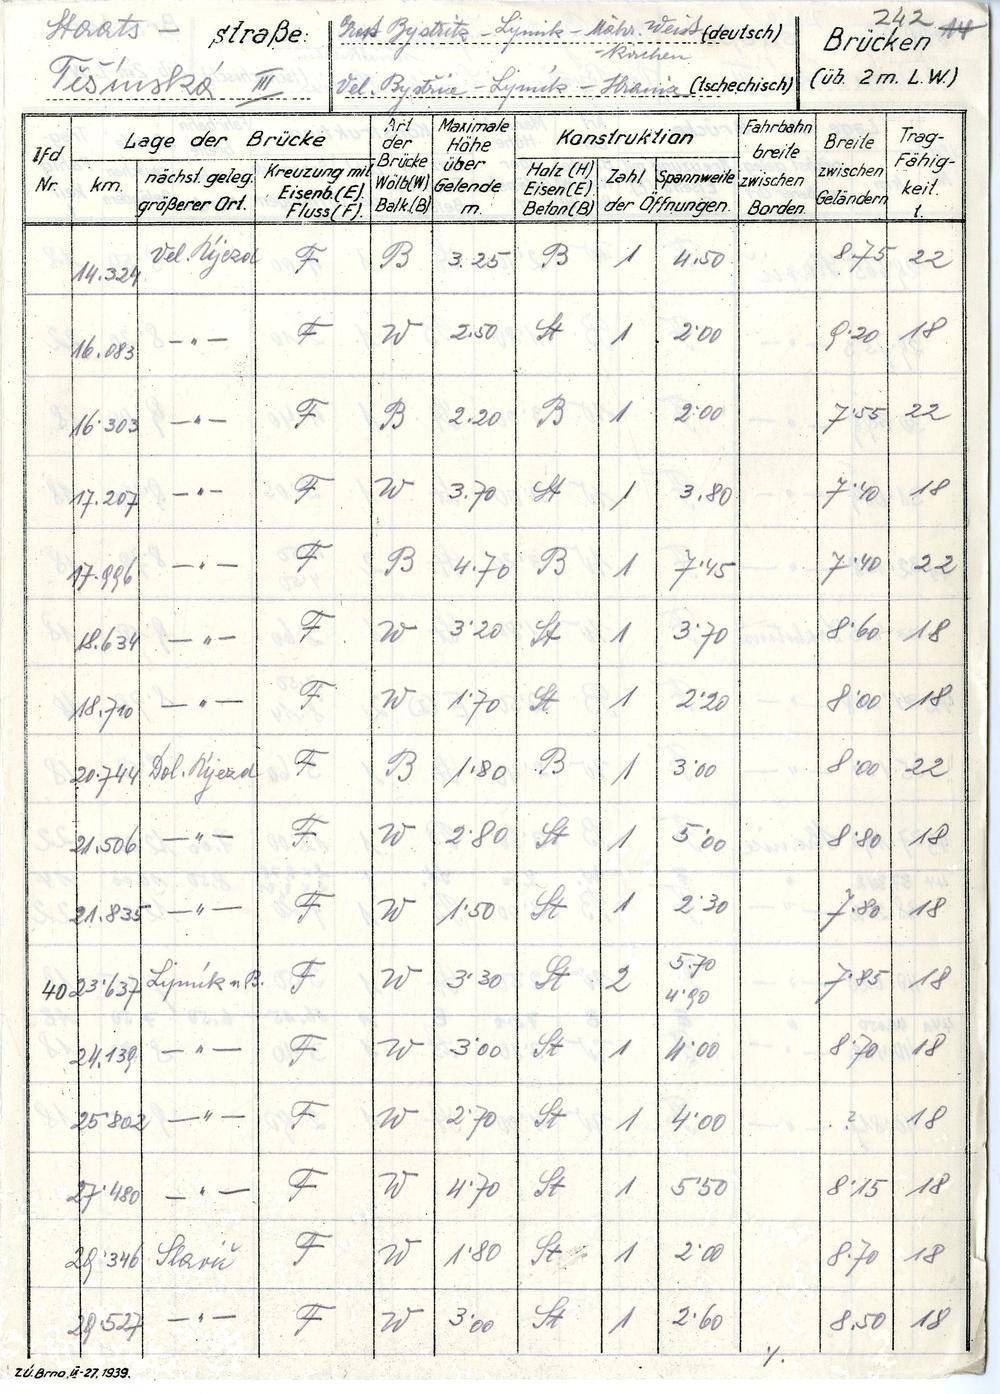 Staats - straße: Gross Bystritz - Lipnik - Mähr. Weiss (deutsch) 242
-kirchen Brücken
Těšínská III Vel. Bystřice - Lipník - Hranice (tschechisch) (üb. 2 m. L.W.)
lfd Nr. | Lage der Brücke | Art der Brücke Wölb(W) Balk.(B) | Maximale Höhe über Gelende m. | Konstruktion | Fahrbahn breite zwischen Borden. | Breite zwischen Geländern | Trag-Fähig-keit. t.
km. | nächst. geleg. größerer Ort. | Kreuzung mit Eisenb.(E). Fluss(F). | Holz (H) Eisen(E). Beton(B) | Zahl | Spannweite | der Öffnungen.
14.324 Vel. Újezd F B 3.25 B 1 4.50 8.75 22
16.083 -"- F W 2.50 St 1 2.00 9.20 18
16.303 -"- F B 2.20 B 1 2.00 7.55 22
17.207 -"- F W 3.70 St 1 3.80 7.40 18
17.996 -"- F B 4.70 B 1 7.45 7.40 22
18.634 -"- F W 3.20 St 1 3.70 8.60 18
18.710 -"- F W 1.70 St 1 2.20 8.00 18
20.744 Dol. Újezd F B 1.80 B 1 3.00 8.00 22
21.506 -"- F W 2.80 St 1 5.00 8.80 18
21.835 -"- F W 1.50 St 1 2.30 7.80 18
40 23.637 Lipník n B. F W 3.30 St 2 5.70 4.90 7.85 18
24.139 -"- F W 3.00 St 1 4.00 8.70 18
25.802 -"- F W 2.70 St 1 4.00 ? 18
27.480 -"- F W 4.70 St 1 5.50 8.15 18
29.346 Slavič F W 1.80 St 1 2.00 8.70 18
29.527 -"- F W 3.00 St 1 2.60 8.50 18
./.
Z.Ú. Brno, II-27. 1939.